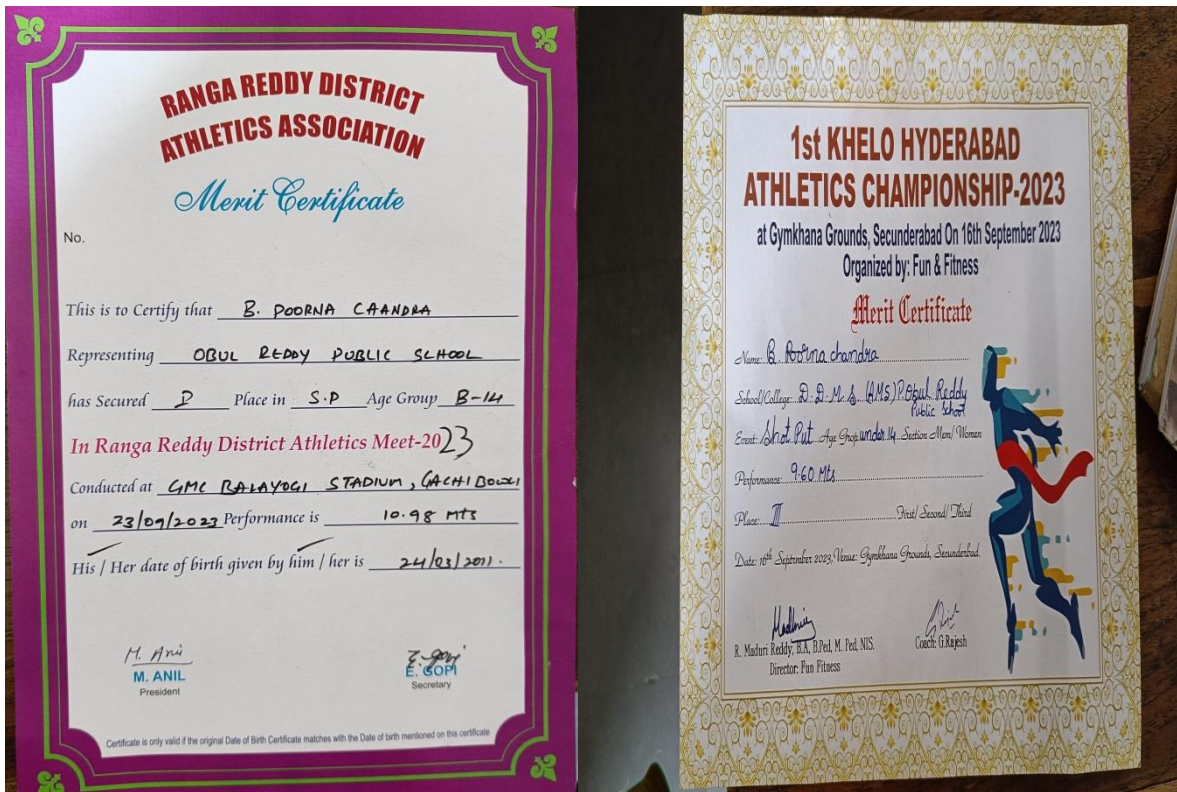 RANGA REDDY DISTRICT
ATHLETICS ASSOCIATION
Merit Certificate
No.
This is to Certify that B. POORNA CHANDRA
Representing OBUL REDDY PUBLIC SCHOOL
has Secured Place in S.P Age Group B-14
In Ranga Reddy District Athletics Meet-2023
Conducted at GMC BALAYOGI STADIUM, GACHIBOWLI
on 23/09/2023 Performance is 10.98 MTS
His / Her date of birth given by him / her is 24/03/2011.
M. Anil
M. ANIL
President
E. Gopi
E. GOPI
Secretary
Certificate is only valid if the original Date of Birth Certificate matches with the Date of birth mentioned on this certificate
1st KHELO HYDERABAD
ATHLETICS CHAMPIONSHIP-2023
at Gymkhana Grounds, Secunderabad On 16th September 2023
Organized by: Fun & Fitness
Merit Certificate
Name: B. Poorna chandra
School/College: D.D.M.S. (AMS) P. Obul Reddy
Public School
Event: Shot Put Age Grop under 14 Section Men/ Women
Performance: 9.60 Mts
Place: III First/ Second/ Third
Date: 16th Septmber 2023, Venue: Gymkhana Grounds, Secunderbad.
R. Maduri Reddy, B.A, B.Ped, M. Ped, NIS.
Director: Fun Fitness
Coach: G.Rajesh